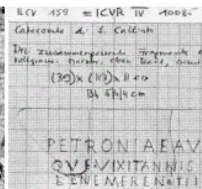 ILCV 159 = ICVR IV 1008-
Catacombe d. S. Callisto
Drei zusammenpassende Fragmente
oben Rand,
(39) x (113) x 11 cm
PETRONIAEAV
QVEVIXITANNIS
BENEMERENTII